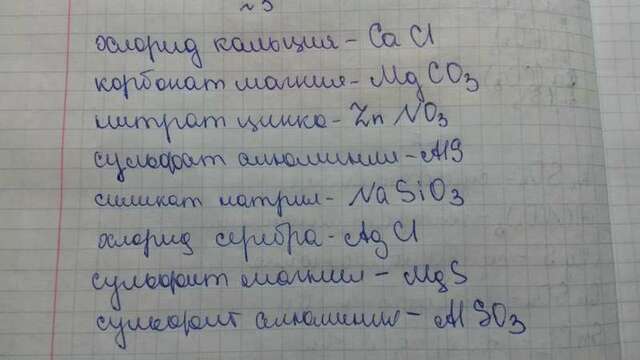 №3
хлорид кальция - CaCl
корбонат магния - MgCO3
нитрат цинка - ZnNO3
сульфат алюминия - AlS
силикат натрия - NaSiO3
хлорид серебра - AgCl
сульфит магния - MgS
сульфит алюминия - AlSO3